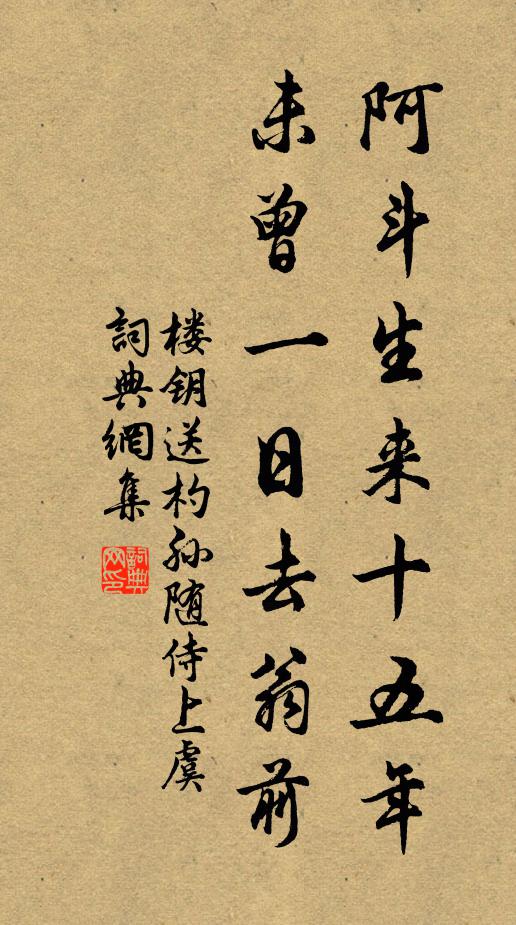 阿斗生来十五年
未曾一日去翁前
楼钥送杓孙随侍上虞
詞典網集
詞典
网印